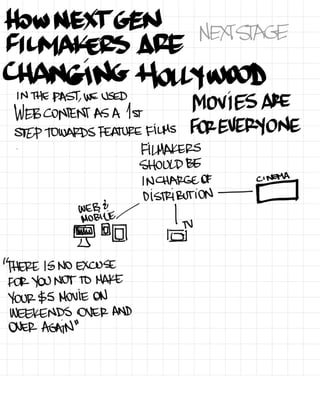 HOW NEXT GEN
FILMAKERS ARE
CHANGING HOLLYWOOD
NEXT STAGE
IN THE PAST, WE USED
WEB CONTENT AS A 1ST
STEP TOWARDS FEATURE FILMS
MOVIES ARE
FOR EVERYONE
FILMAKERS
SHOULD BE
IN CHARGE OF
DISTRIBUTION
CINEMA
WEB &
MOBILE
TV
"THERE IS NO EXCUSE
FOR YOU NOT TO MAKE
YOUR $5 MOVIE ON
WEEKENDS OVER AND
OVER AGAIN"